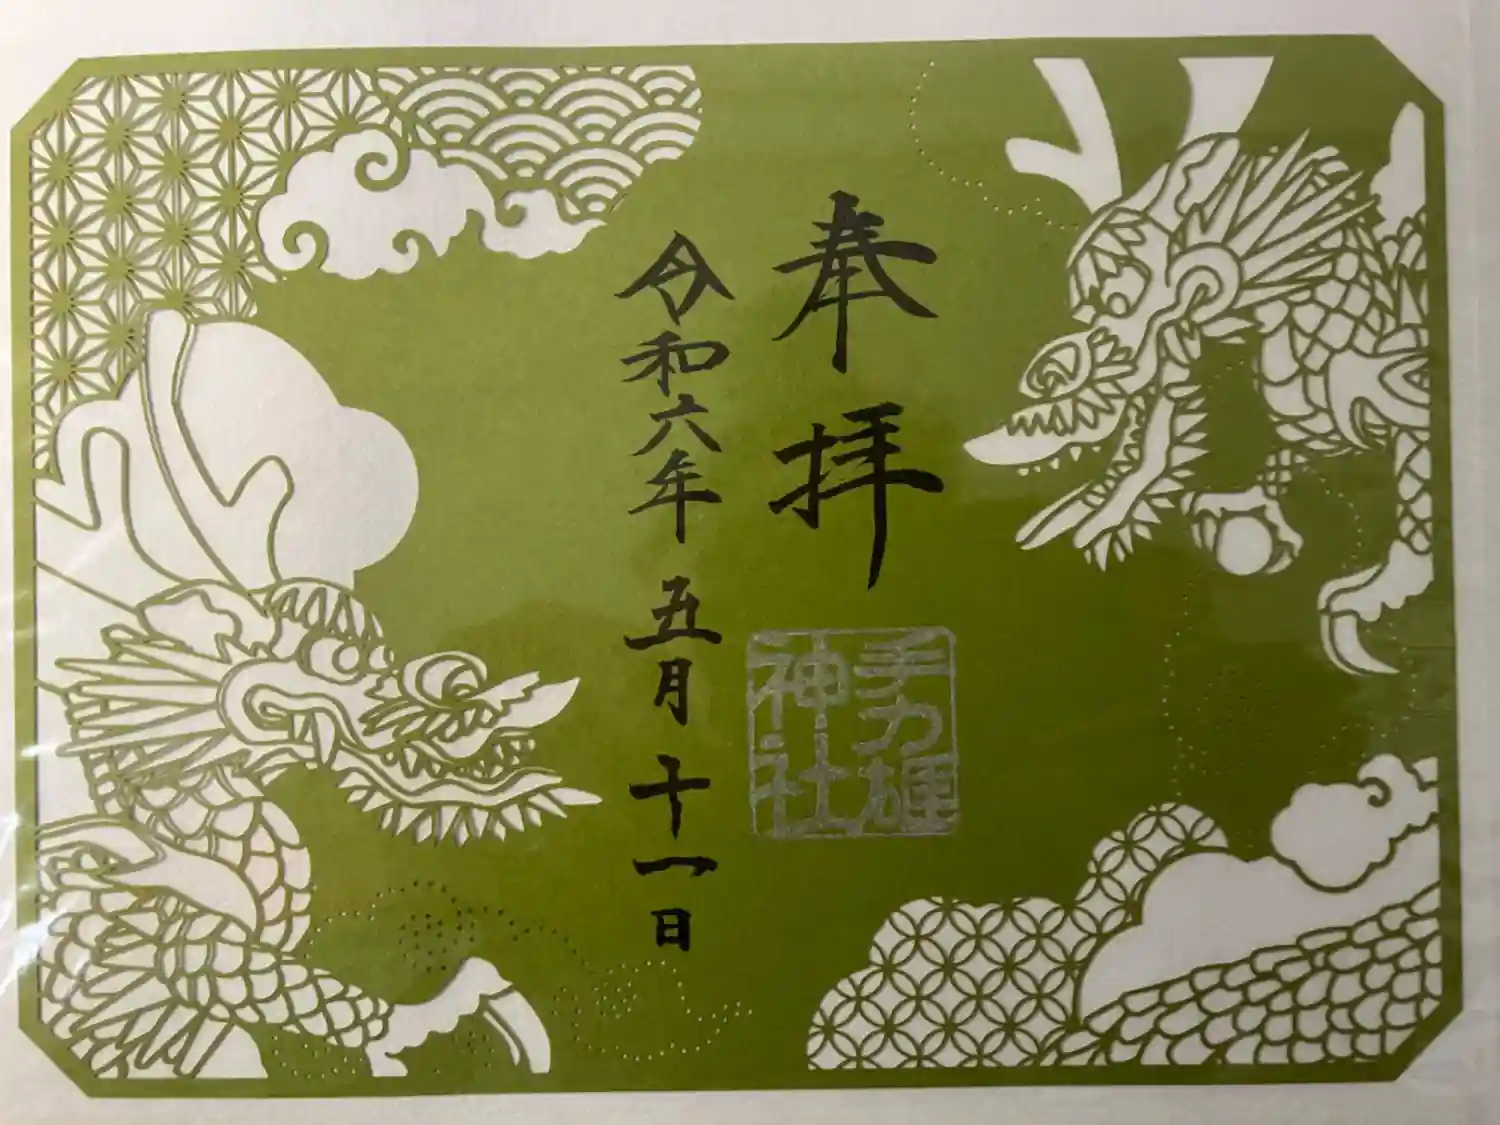 奉拝
手力雄
神社
令和六年 五月 十一日